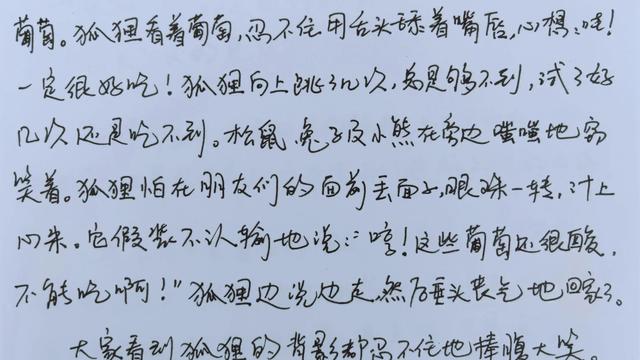 葡萄。狐狸看着葡萄,忍不住用舌头舔着嘴唇,心想:哇!
一定很好吃!狐狸向上跳了几次,总是够不到,试了好
几次还是吃不到。松鼠、兔子及小熊在旁边嗤嗤地窃
笑着。狐狸怕在朋友们的面前丢面子,眼珠一转,计上
心来。它假装不认输地说:“哼!这些葡萄还很酸,
不能吃啊!”狐狸边说边走,然后垂头丧气地回家了。
大家看到狐狸的背影都忍不住地捧腹大笑。